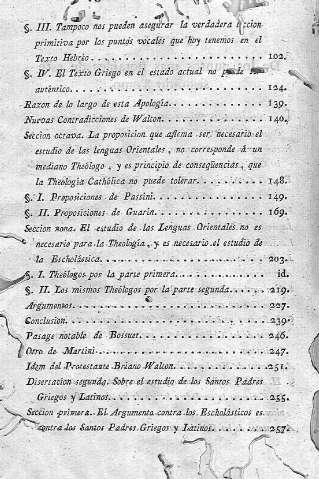 §. III. Tampoco nos pueden asegurar la verdadera leccion
primitiva por los puntos vocales que hoy tenemos en el
Texto Hebréo. . . . . . . . . . . . . . . . . . . . . . 102.
§. IV. El Texto Griego en el estado actual no puede ser
auténtico. . . . . . . . . . . . . . . . . . . . . . . . 124.
Razon de lo largo de esta Apología. . . . . . . . . . . . 139.
Nuevas Contradicciones de Walton. . . . . . . . . . . . . 140.
Seccion octava. La proposicion que afirma ser necesario el
estudio de las lenguas Orientales, no corresponde á un
mediano Theólogo, y es principio de conseqüencias, que
la Theología Cathólica no puede tolerar. . . . . . . . . 148.
§. I. Proposiciones de Passini. . . . . . . . . . . . . . 149.
§. II. Proposiciones de Guarin. . . . . . . . . . . . . . 169.
Seccion nona. El estudio de las Lenguas Orientales no es
necesario para la Theología, y es necesario el estudio de
la Escholástica. . . . . . . . . . . . . . . . . . . . . 203.
§. I. Theólogos por la parte primera. . . . . . . . . . . id.
§. II. Los mismos Theólogos por la parte segunda. . . . . 219.
Argumentos. . . . . . . . . . . . . . . . . . . . . . . . 227.
Conclusion. . . . . . . . . . . . . . . . . . . . . . . . 239.
Pasage notable de Bossuet. . . . . . . . . . . . . . . . 246.
Otro de Martini. . . . . . . . . . . . . . . . . . . . . 247.
Idem del Protestante Briano Walton. . . . . . . . . . . . 251.
Disertacion segunda. Sobre el estudio de los Santos Padres
Griegos y Latinos. . . . . . . . . . . . . . . . . . . . 255.
Seccion primera. El Argumento contra los Escholásticos es
contra los Santos Padres Griegos y Latinos. . . . . . . . 257.